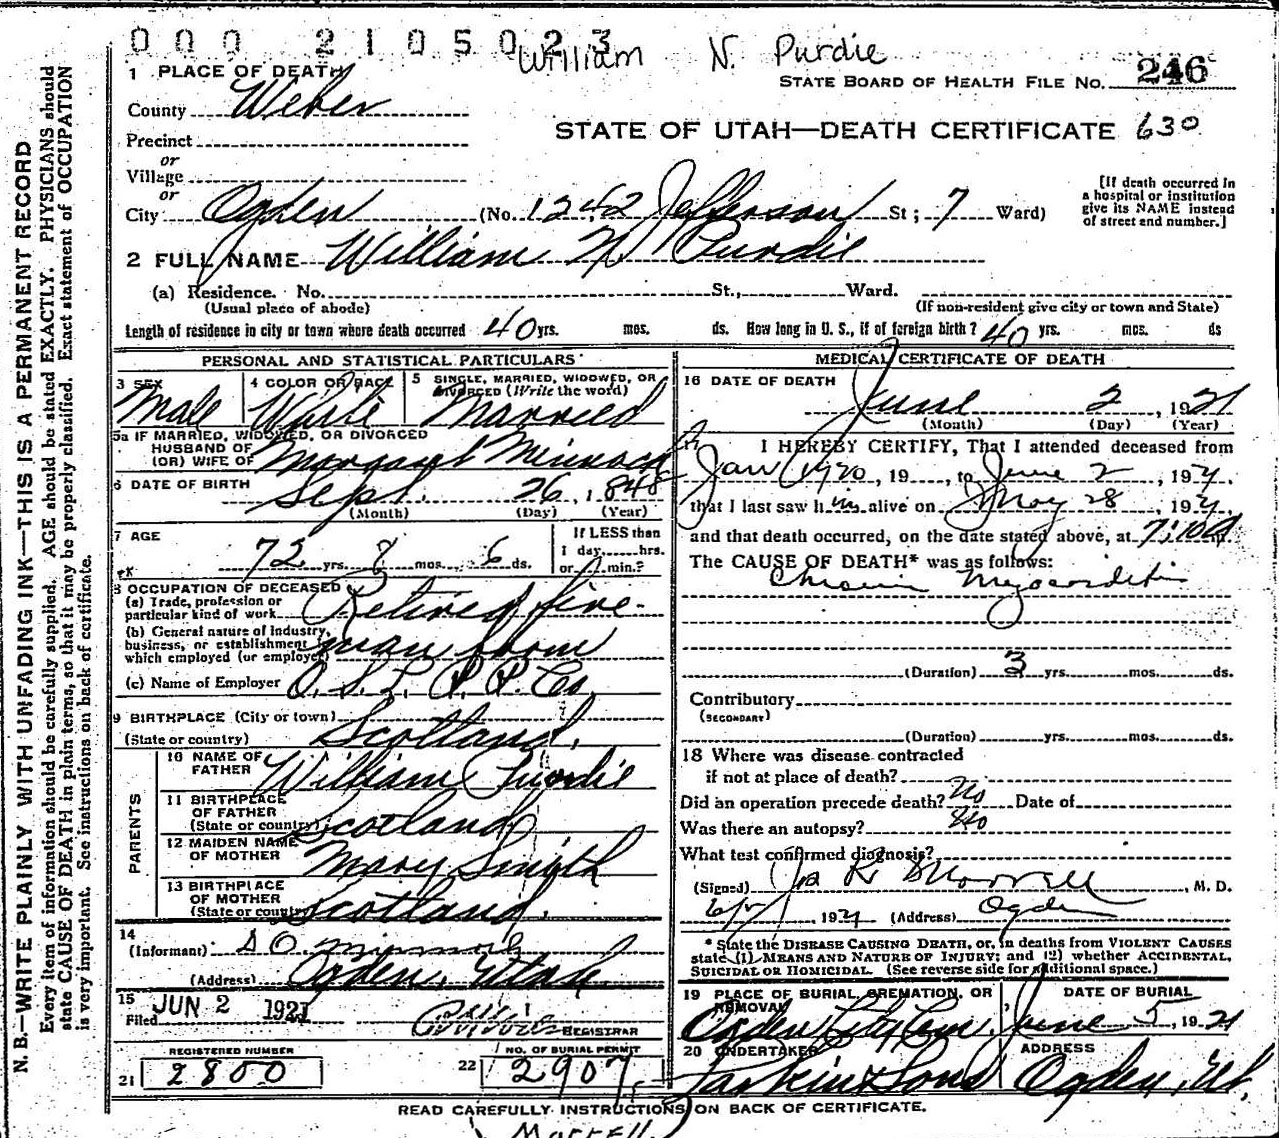 0 0 0 2 1 0 5 0 2 3
William N. Purdie
STATE BOARD OF HEALTH FILE NO. 246
1 PLACE OF DEATH
County Weber
STATE OF UTAH—DEATH CERTIFICATE 630
Precinct
or
Village
or
City Ogden (No. 1242 Jefferson St; 7 Ward)
[If death occurred in a hospital or institution give its NAME instead of street and number.]
2 FULL NAME William N Purdie
(a) Residence. No. St., Ward.
(Usual place of abode) (If non-resident give city or town and State)
Length of residence in city or town where death occurred 40 yrs. mos. ds. How long in U. S., if of foreign birth? 40 yrs. mos. ds
PERSONAL AND STATISTICAL PARTICULARS
3 SEX 4 COLOR OR RACE 5 SINGLE, MARRIED, WIDOWED, OR DIVORCED (Write the word)
Male White Married
5a IF MARRIED, WIDOWED, OR DIVORCED
HUSBAND OF
(OR) WIFE OF Margaret
6 DATE OF BIRTH Sept. 26, 1848
(Month) (Day) (Year)
7 AGE If LESS than
72 yrs. 8 mos. 6 ds. 1 day, hrs.
or min.?
8 OCCUPATION OF DECEASED
(a) Trade, profession or
particular kind of work Retired fire-
(b) General nature of industry,
business, or establishment in
which employed (or employer) man from
(c) Name of Employer O. S. L. R. R. Co.
9 BIRTHPLACE (City or town)
(State or country) Scotland.
PARENTS
10 NAME OF
FATHER William Purdie
11 BIRTHPLACE
OF FATHER
(State or country) Scotland
12 MAIDEN NAME
OF MOTHER Mary Smith
13 BIRTHPLACE
OF MOTHER
(State or country) Scotland.
14
(Informant)
(Address) Ogden, Utah
15
Filed JUN 2 1921
REGISTRAR
REGISTERED NUMBER NO. OF BURIAL PERMIT
21 2800 22 2907
MEDICAL CERTIFICATE OF DEATH
16 DATE OF DEATH
June 2, 1921
(Month) (Day) (Year)
17 I HEREBY CERTIFY, That I attended deceased from
Jan 1920, 19 , to June 2, 1921.
that I last saw him alive on May 28, 1921.
and that death occurred, on the date stated above, at 7:10 a m.
The CAUSE OF DEATH* was as follows:
Chronic Myocarditis
(Duration) 3 yrs. mos. ds.
Contributory
(SECONDARY)
(Duration) yrs. mos. ds.
18 Where was disease contracted
if not at place of death?
Did an operation precede death? No Date of
Was there an autopsy? No
What test confirmed diagnosis?
(Signed) , M. D.
6/2, 1921 (Address) Ogden
* State the DISEASE CAUSING DEATH, or, in deaths from VIOLENT CAUSES
state (1) MEANS AND NATURE OF INJURY; and (2) whether ACCIDENTAL,
SUICIDAL OR HOMICIDAL. (See reverse side for additional space.)
19 PLACE OF BURIAL, CREMATION, OR REMOVAL DATE OF BURIAL
Ogden City Cem. June 5, 1921
20 UNDERTAKER ADDRESS
Larkin & Sons Ogden, Ut.
READ CAREFULLY INSTRUCTIONS ON BACK OF CERTIFICATE.
N. B.—WRITE PLAINLY WITH UNFADING INK—THIS IS A PERMANENT RECORD
Every item of information should be carefully supplied. AGE should be stated EXACTLY. PHYSICIANS should
state CAUSE OF DEATH in plain terms, so that it may be properly classified. Exact statement of OCCUPATION
is very important. See instructions on back of certificate.